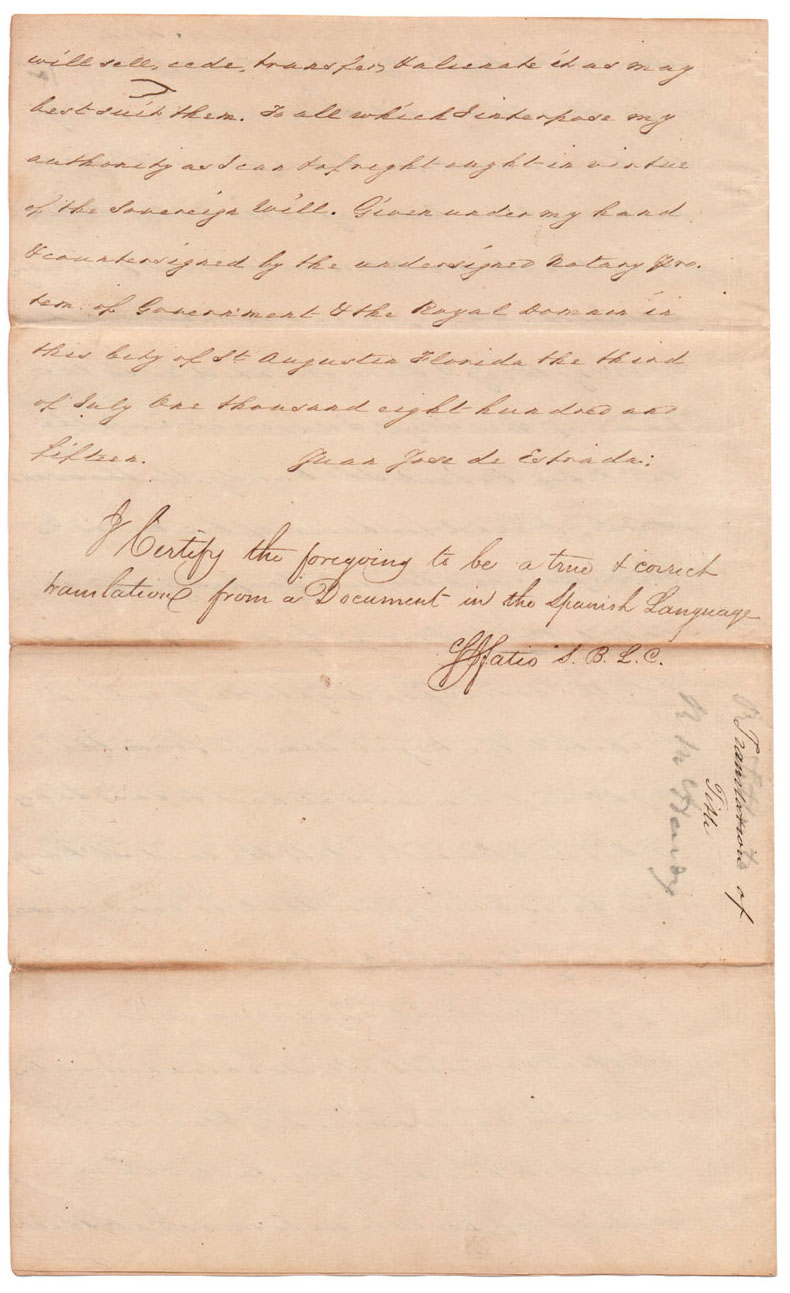 will sell, cede, transfer, & alienate it as may
best suit them. To all which I interpose my
authority as I can & of right ought in virtue
of the Sovereign Will. Given under my hand
& countersigned by the undersigned Notary Pro.
tem. of Government & the Royal Domain in
this City of St Augustin Florida the third
of July One thousand eight hundred and
fifteen. Juan Jose de Estrada:
I Certify the foregoing to be a true & correct
translation from a Document in the Spanish Language
Fatio S. B. L. C.
Translation of
Title